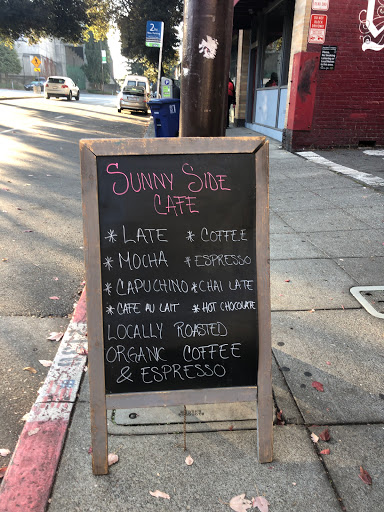 SUNNY SIDE
CAFE
* LATE * COFFEE
* MOCHA * ESPRESSO
* CAPUCHINO * CHAI LATE
* CAFE AU LAIT * HOT CHOCOLATE
LOCALLY ROASTED
ORGANIC COFFEE
& ESPRESSO